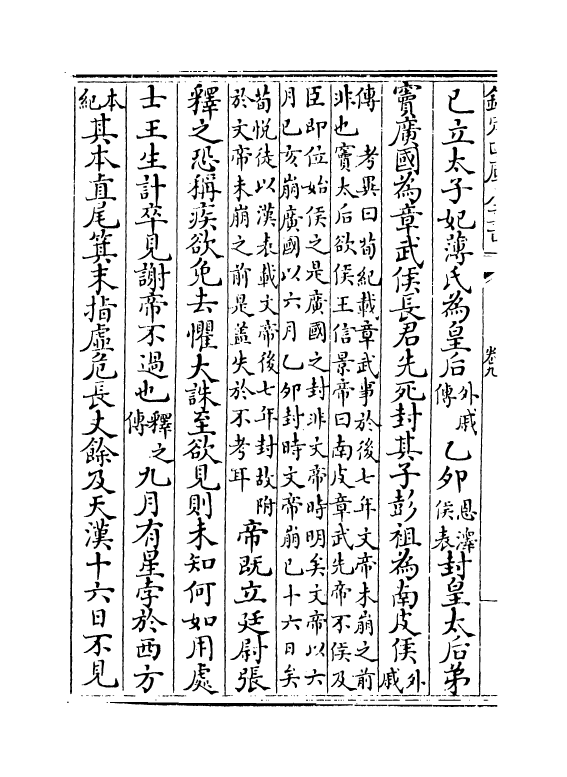 卷九
已立太子妃薄氏為皇后外戚傳乙卯恩澤侯表封皇太后弟
竇廣國為章武侯長君先死封其子彭祖為南皮侯外戚
傳 考異曰荀紀載章武事於後七年文帝未崩之前
非也竇太后欲侯王信景帝曰南皮章武先帝不侯及
臣即位始侯之是廣國之封非文帝時明矣文帝以六
月已亥崩廣國以六月乙卯封時文帝崩已十六日矣
荀悅徒以漢表載文帝後七年封故附
於文帝未崩之前是蓋失於不考耳
帝既立廷尉張
釋之恐稱疾欲免去懼大誅至欲見則未知何如用處
士王生計卒見謝帝不過也釋之傳九月有星孛於西方
本紀其本直尾箕末指虛危長丈餘及天漢十六日不見